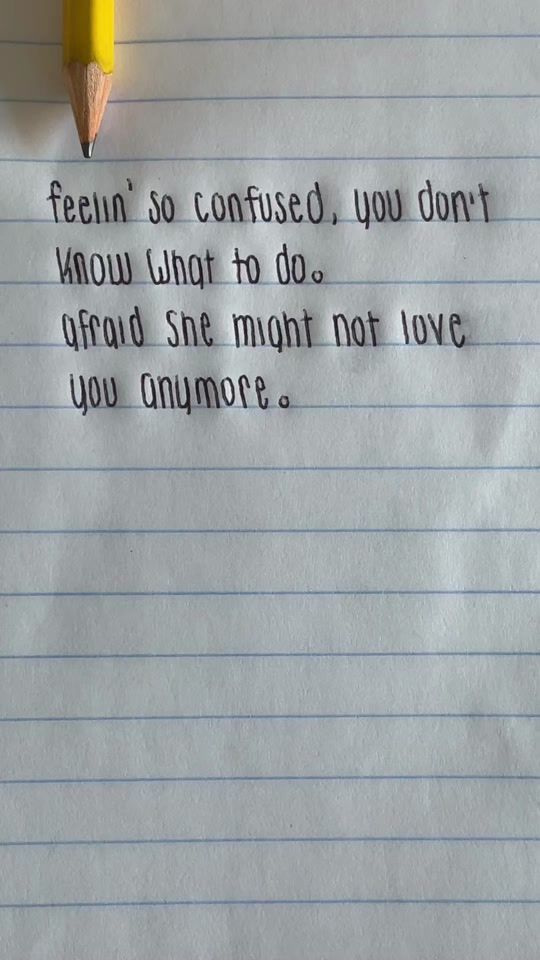 feelin' so confused, you don't
know what to do.
afraid she might not love
you anymore.